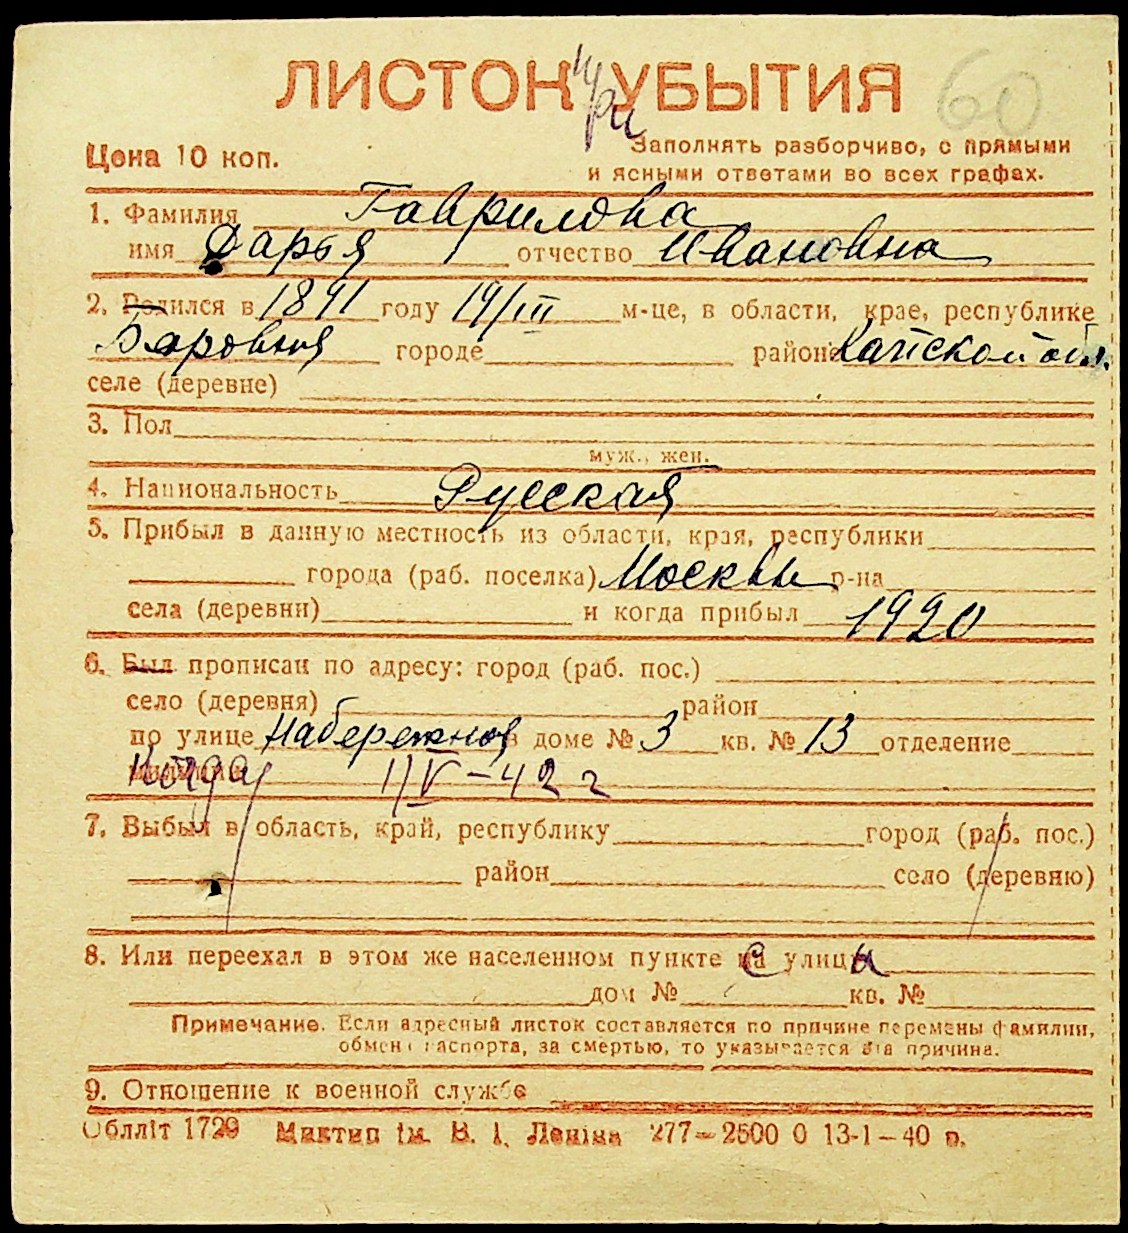 ЛИСТОК УБЫТИЯ
при
60
Цена 10 коп.
Заполнять разборчиво, с прямыми
и ясными ответами во всех графах.
1. Фамилия Гаврилова
имя Дарья отчество Ивановна
2. Родился в 1891 году 19/III м-це, в области, крае, республике
городе районе обл.
селе (деревне)
3. Пол
муж., жен.
4. Национальность Русская
5. Прибыл в данную местность из области, края, республики
города (раб. поселка) Москвы р-на
села (деревни) и когда прибыл 1920
6. Был прописан по адресу: город (раб. пос.)
село (деревня) район
по улице Набережной в доме № 3 кв. № 13 отделение
Когда 1/V-42 г
7. Выбыл в область, край, республику город (раб. пос.)
район село (деревню)
8. Или переехал в этом же населенном пункте с улицы
дом № кв. №
Примечание. Если адресный листок составляется по причине перемены фамилии,
обмена паспорта, за смертью, то указывается эта причина.
9. Отношение к военной службе
Облліт 1729 Миктип ім. В. І. Леніна 277—2500 0 13-1—40 р.